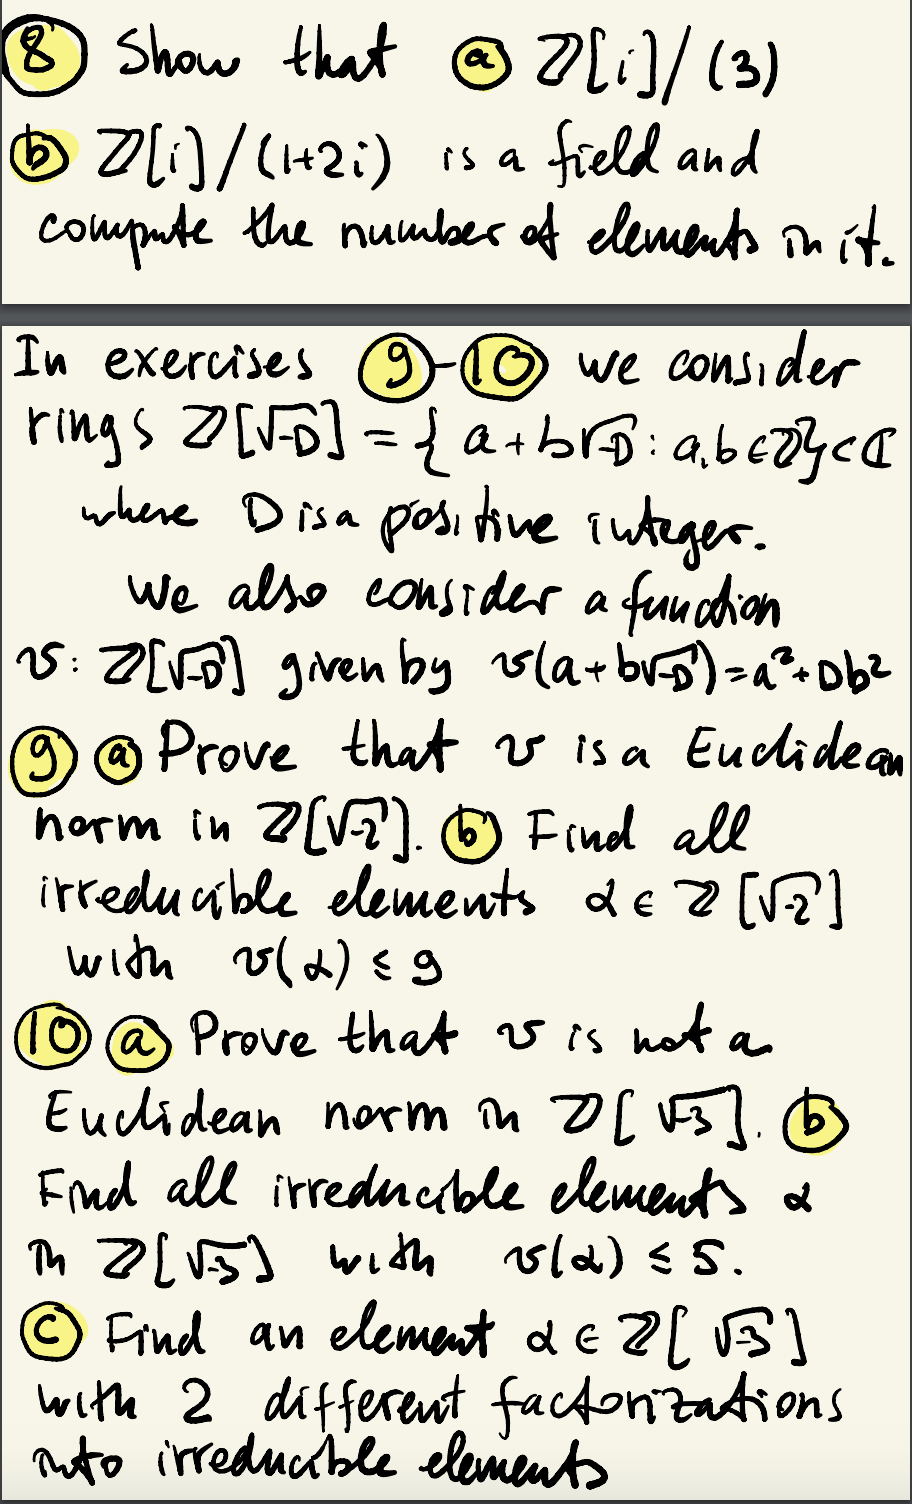 8 Show that a ℤ[i]/(3)
b ℤ[i]/(1+2i) is a field and
compute the number of elements in it.
In exercises 9-10 we consider
rings ℤ[√-D] = {a+b√-D : a,b∈ℤ}⊂ℂ
where D is a positive integer.
We also consider a function
v: ℤ[√-D] given by v(a+b√-D)=a²+Db²
9 a Prove that v is a Euclidean
norm in ℤ[√-2]. b Find all
irreducible elements α ∈ ℤ[√-2]
with v(α) ≤ 9
10 a Prove that v is not a
Euclidean norm in ℤ[√-3]. b
Find all irreducible elements α
in ℤ[√-3] with v(α) ≤ 5.
c Find an element α ∈ ℤ[√-3]
with 2 different factorizations
into irreducible elements